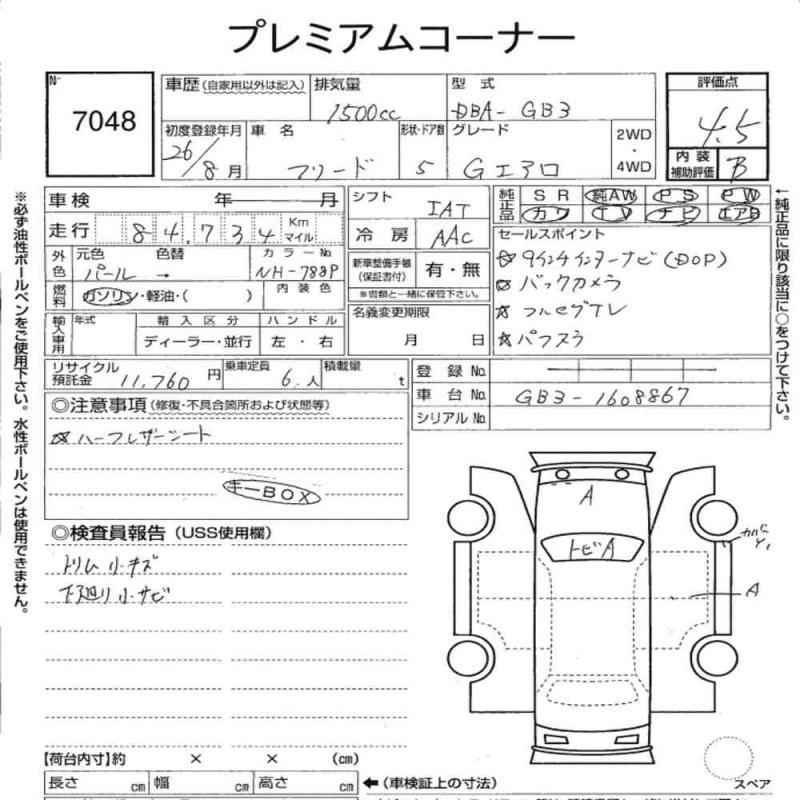 プレミアムコーナー
No.
7048
車歴(自家用以外は記入)
排気量
1500cc
型式
DBA-GB3
評価点
4.5
初度登録年月
26/8月
車名
フリード
形状・ドア数
5
グレード
Gエアロ
2WD
・
4WD
内装補助評価
B
車検 年 月
走行 84,734 Km マイル
シフト
IAT
冷房
AAC
純正品
SR 純AW PS PW
カワ TV ナビ エアB
外色
元色
パール
色替
→
カラーNo.
NH-788P
燃料
ガソリン・軽油・( )
内装色
新車整備手帳(保証書付)
有・無
※書類と一緒に保管下さい。
セールスポイント
☆9インチインターナビ(DOP)
☆バックカメラ
☆フルセグTV
☆パワスラ
輸入車用
年式
輸入区分
ハンドル
ディーラー・並行
左・右
名義変更期限
月 日
リサイクル預託金
11,760円
乗車定員
6人
積載量
t
登録No.
車台No.
GB3-1608867
シリアルNo.
◎注意事項(修復・不具合箇所および状態等)
☆ハーフレザーシート
キーBOX
◎検査員報告(USS使用欄)
トリム小キズ
下廻り小サビ
A
トビA
A
【荷台内寸】約 × × (cm)
長さ cm 幅 cm 高さ cm
←(車検証上の寸法)
スペア
※必ず油性ボールペンをご使用下さい。水性ボールペンは使用できません。
←純正品に限り該当に○をつけて下さい。